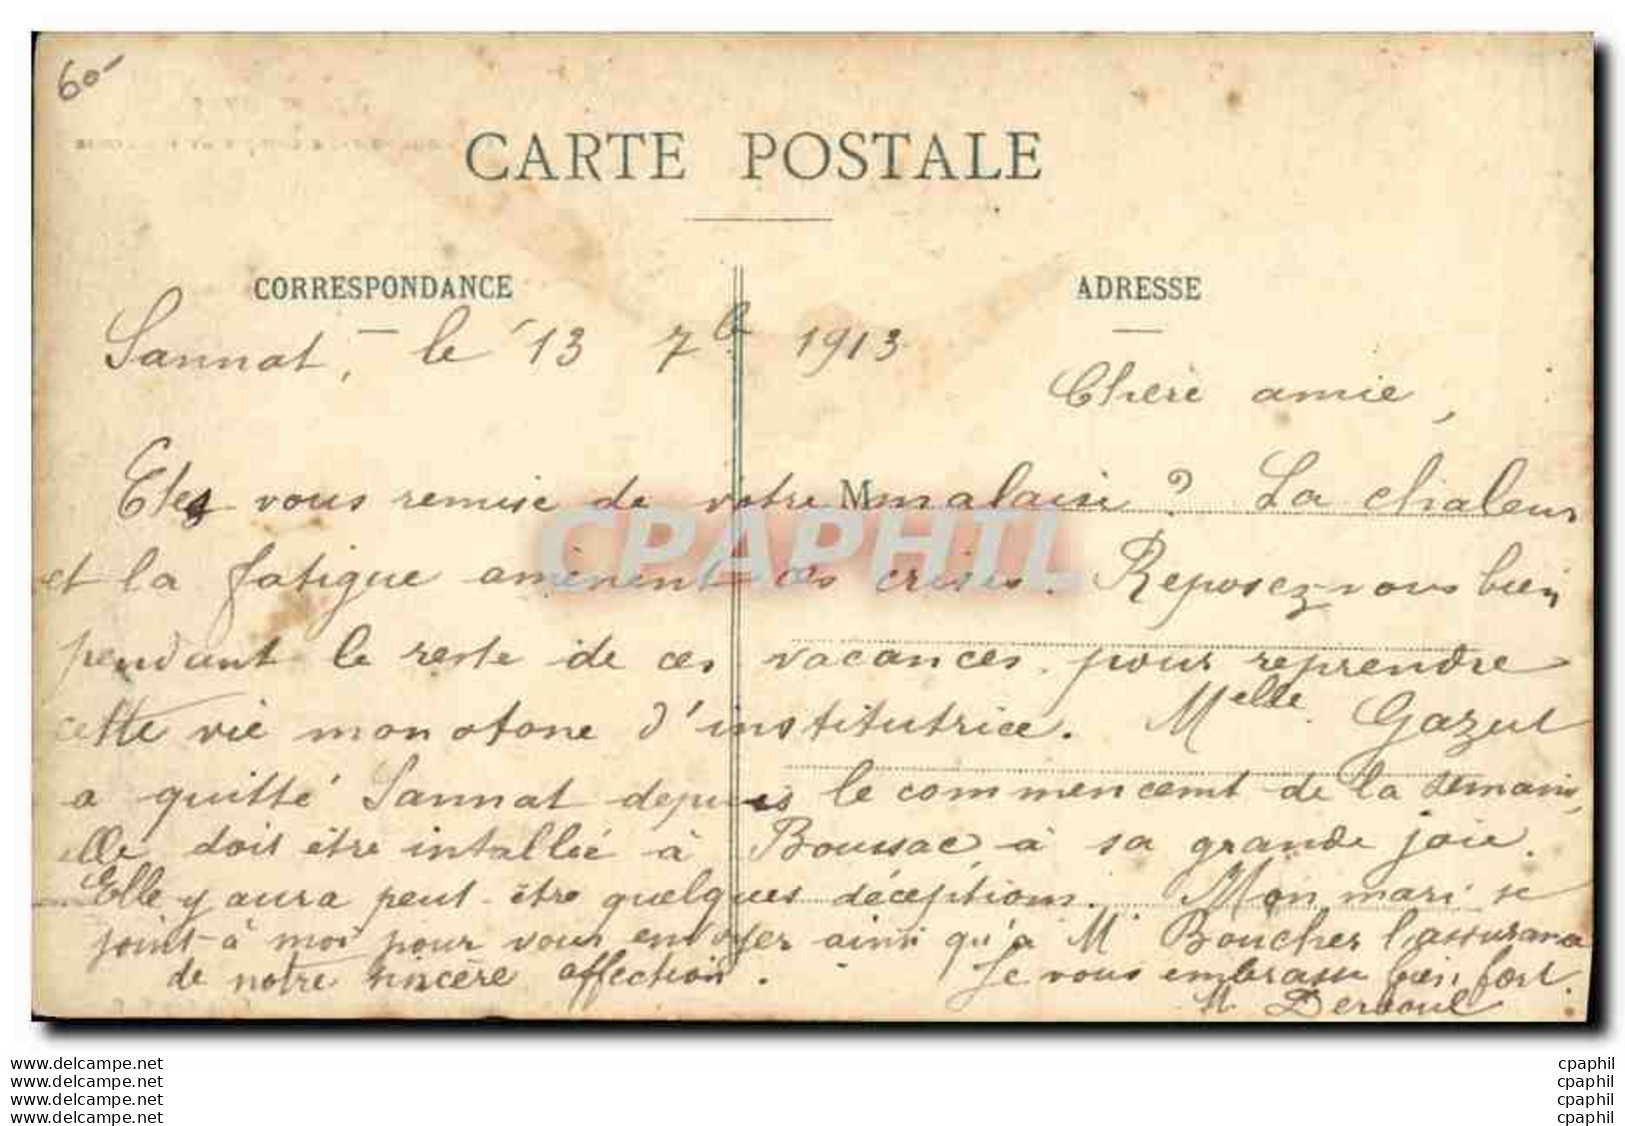 60-
CARTE POSTALE
CORRESPONDANCE
ADRESSE
Sannat, le 13 7b 1913
Chère amie,
Etes vous remise de votre malaise ? La chaleur
M
et la fatigue amènent ces crises. Reposez-vous bien
pendant le reste de ces vacances pour reprendre
cette vie monotone d'institutrice. Melle Gazut
a quitté Sannat depuis le commencemt de la semaine,
elle doit être intallée à Boussac, à sa grande joie.
Elle y aura peut-être quelques déceptions. Mon mari se
joint à moi pour vous envoyer ainsi qu'à Mr Boucher l'assurance
de notre sincère affection. Je vous embrasse bien fort.
M
CPAPHIL
www.delcampe.net
www.delcampe.net
www.delcampe.net
www.delcampe.net
cpaphil
cpaphil
cpaphil
cpaphil